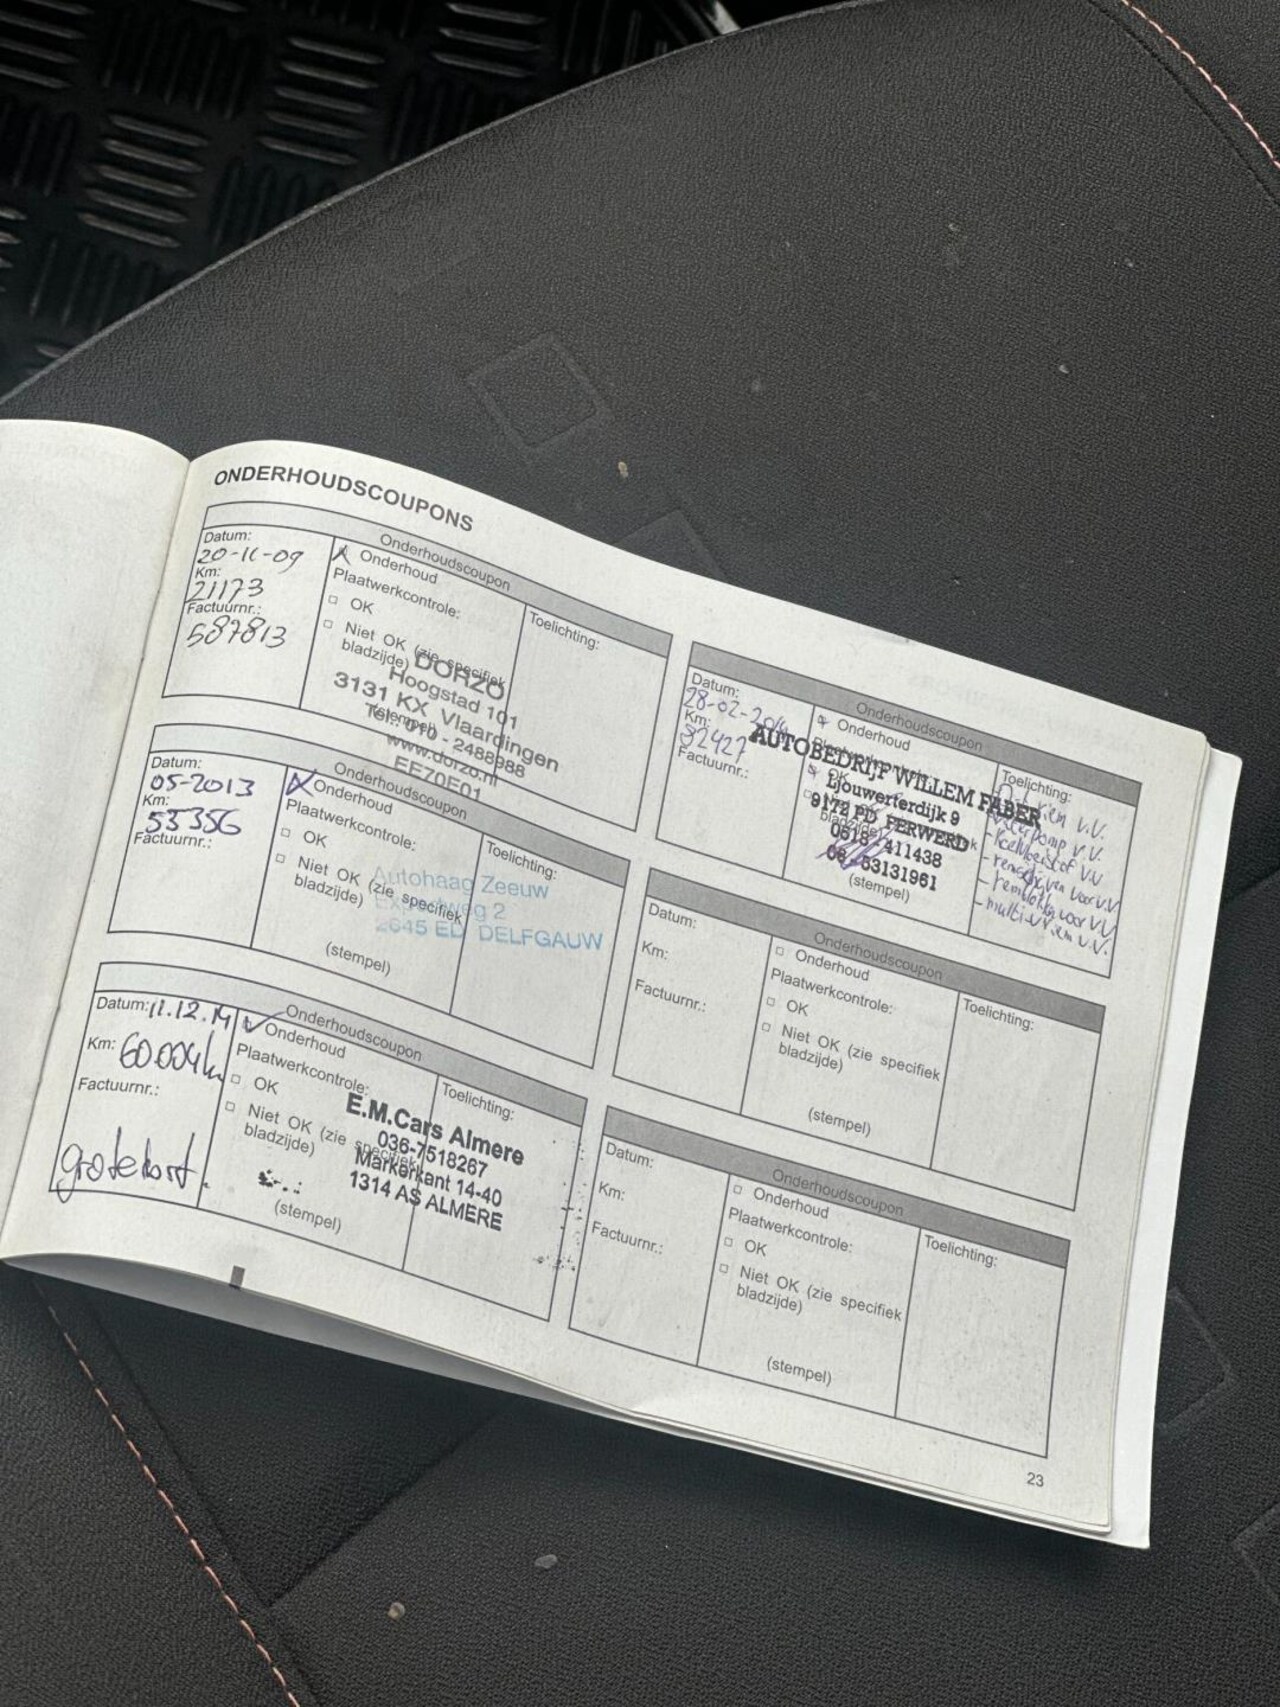 ONDERHOUDSCOUPONS
Onderhoudscoupon
Datum:
20-11-09
Km:
21173
Factuurnr.:
587813
Onderhoud
Plaatwerkcontrole:
OK
Niet OK (zie specifiek
bladzijde)
(stempel)
Toelichting:
DORZO
Hoogstad 101
3131 KX Vlaardingen
Tel.: 010 - 2488988
www.dorzo.nl
EE70E01
Onderhoudscoupon
Datum:
05-2013
Km:
53356
Factuurnr.:
Onderhoud
Plaatwerkcontrole:
OK
Niet OK (zie specifiek
bladzijde)
(stempel)
Toelichting:
Autohaag Zeeuw
2645 ED DELFGAUW
Onderhoudscoupon
Datum: 11.12.14
Km: 60.004km
Factuurnr.:
grote beurt.
Onderhoud
Plaatwerkcontrole:
OK
Niet OK (zie specifiek
bladzijde)
(stempel)
Toelichting:
E.M.Cars Almere
036-7518267
Markerkant 14-40
1314 AS ALMERE
Onderhoudscoupon
Datum:
28-02-
Km:
Factuurnr.:
Onderhoud
OK
(stempel)
Toelichting:
AUTOBEDRIJF WILLEM FABER
Ljouwerterdijk 9
9172 PD FERWERD
0518-411438
06-53131961
v.v.
- waterpomp v.v.
- koelvloeistof v.v
- remschijven voor v.v.
- remblokken voor v.v
- multi-v riem v.v.
Onderhoudscoupon
Datum:
Km:
Factuurnr.:
Onderhoud
Plaatwerkcontrole:
OK
Niet OK (zie specifiek
bladzijde)
(stempel)
Toelichting:
Onderhoudscoupon
Datum:
Km:
Factuurnr.:
Onderhoud
Plaatwerkcontrole:
OK
Niet OK (zie specifiek
bladzijde)
(stempel)
Toelichting:
23